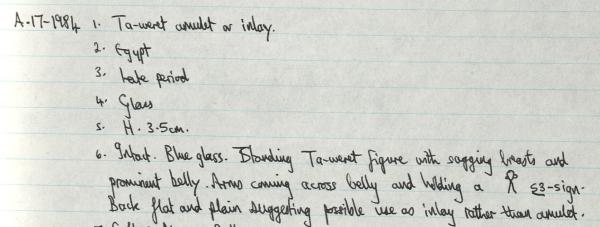 A.17-1984 1. Ta-weret amulet or inlay.
2. Egypt
3. Late period
4. Glass
5. H. 3.5cm.
6. Intact. Blue glass. Standing Ta-weret figure with sagging breasts and
prominent belly. Arms coming across belly and holding a s3-sign.
Back flat and plain suggesting possible use as inlay rather than amulet.